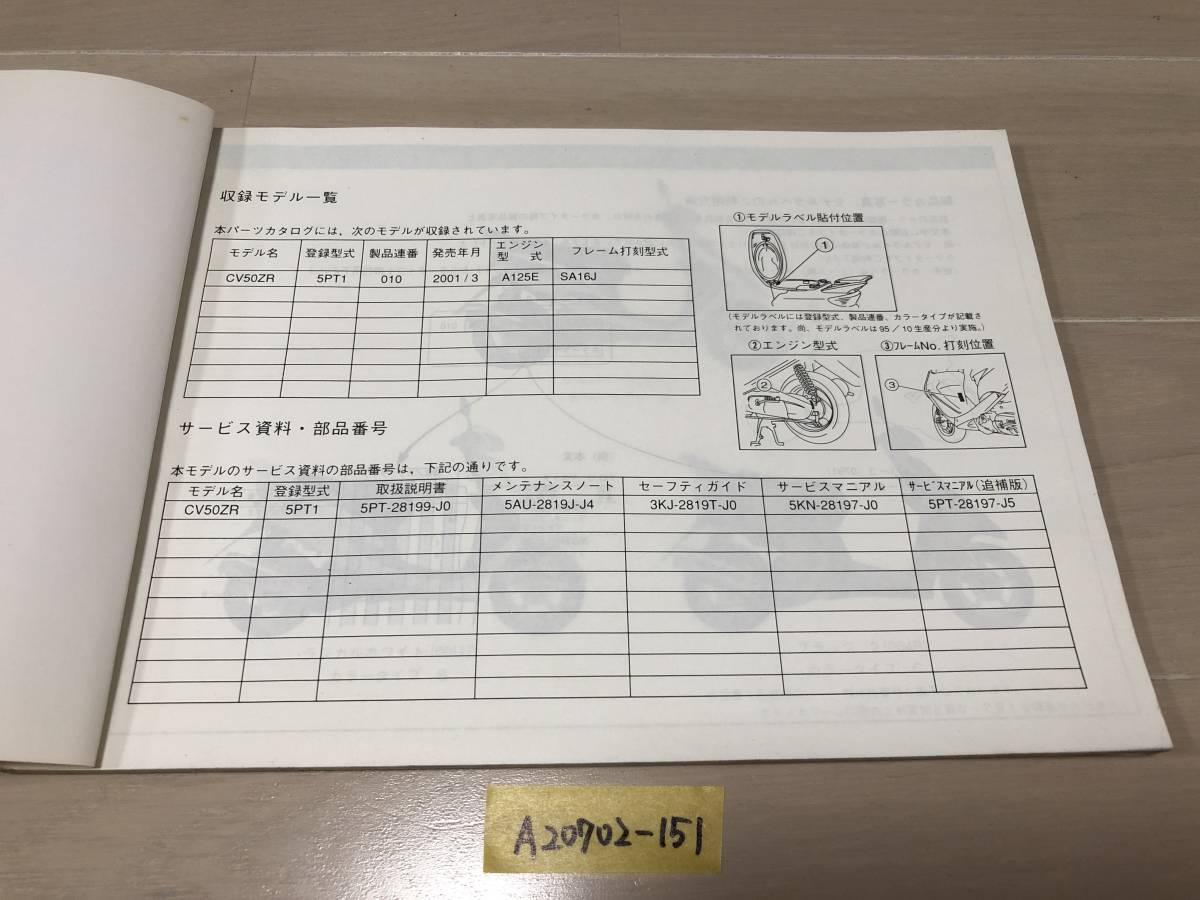 収録モデル一覧
本パーツカタログには、次のモデルが収録されています。
モデル名 登録型式 製品連番 発売年月 エンジン型式 フレーム打刻型式
CV50ZR 5PT1 010 2001/3 A125E SA16J
①モデルラベル貼付位置
①
(モデルラベルには登録型式、製品連番、カラータイプが記載さ
れております。尚、モデルラベルは95/10生産分より実施。)
②エンジン型式 ③フレームNo.打刻位置
② ③
サービス資料・部品番号
本モデルのサービス資料の部品番号は、下記の通りです。
モデル名 登録型式 取扱説明書 メンテナンスノート セーフティガイド サービスマニアル サービスマニアル(追補版)
CV50ZR 5PT1 5PT-28199-J0 5AU-2819J-J4 3KJ-2819T-J0 5KN-28197-J0 5PT-28197-J5
A20702-151